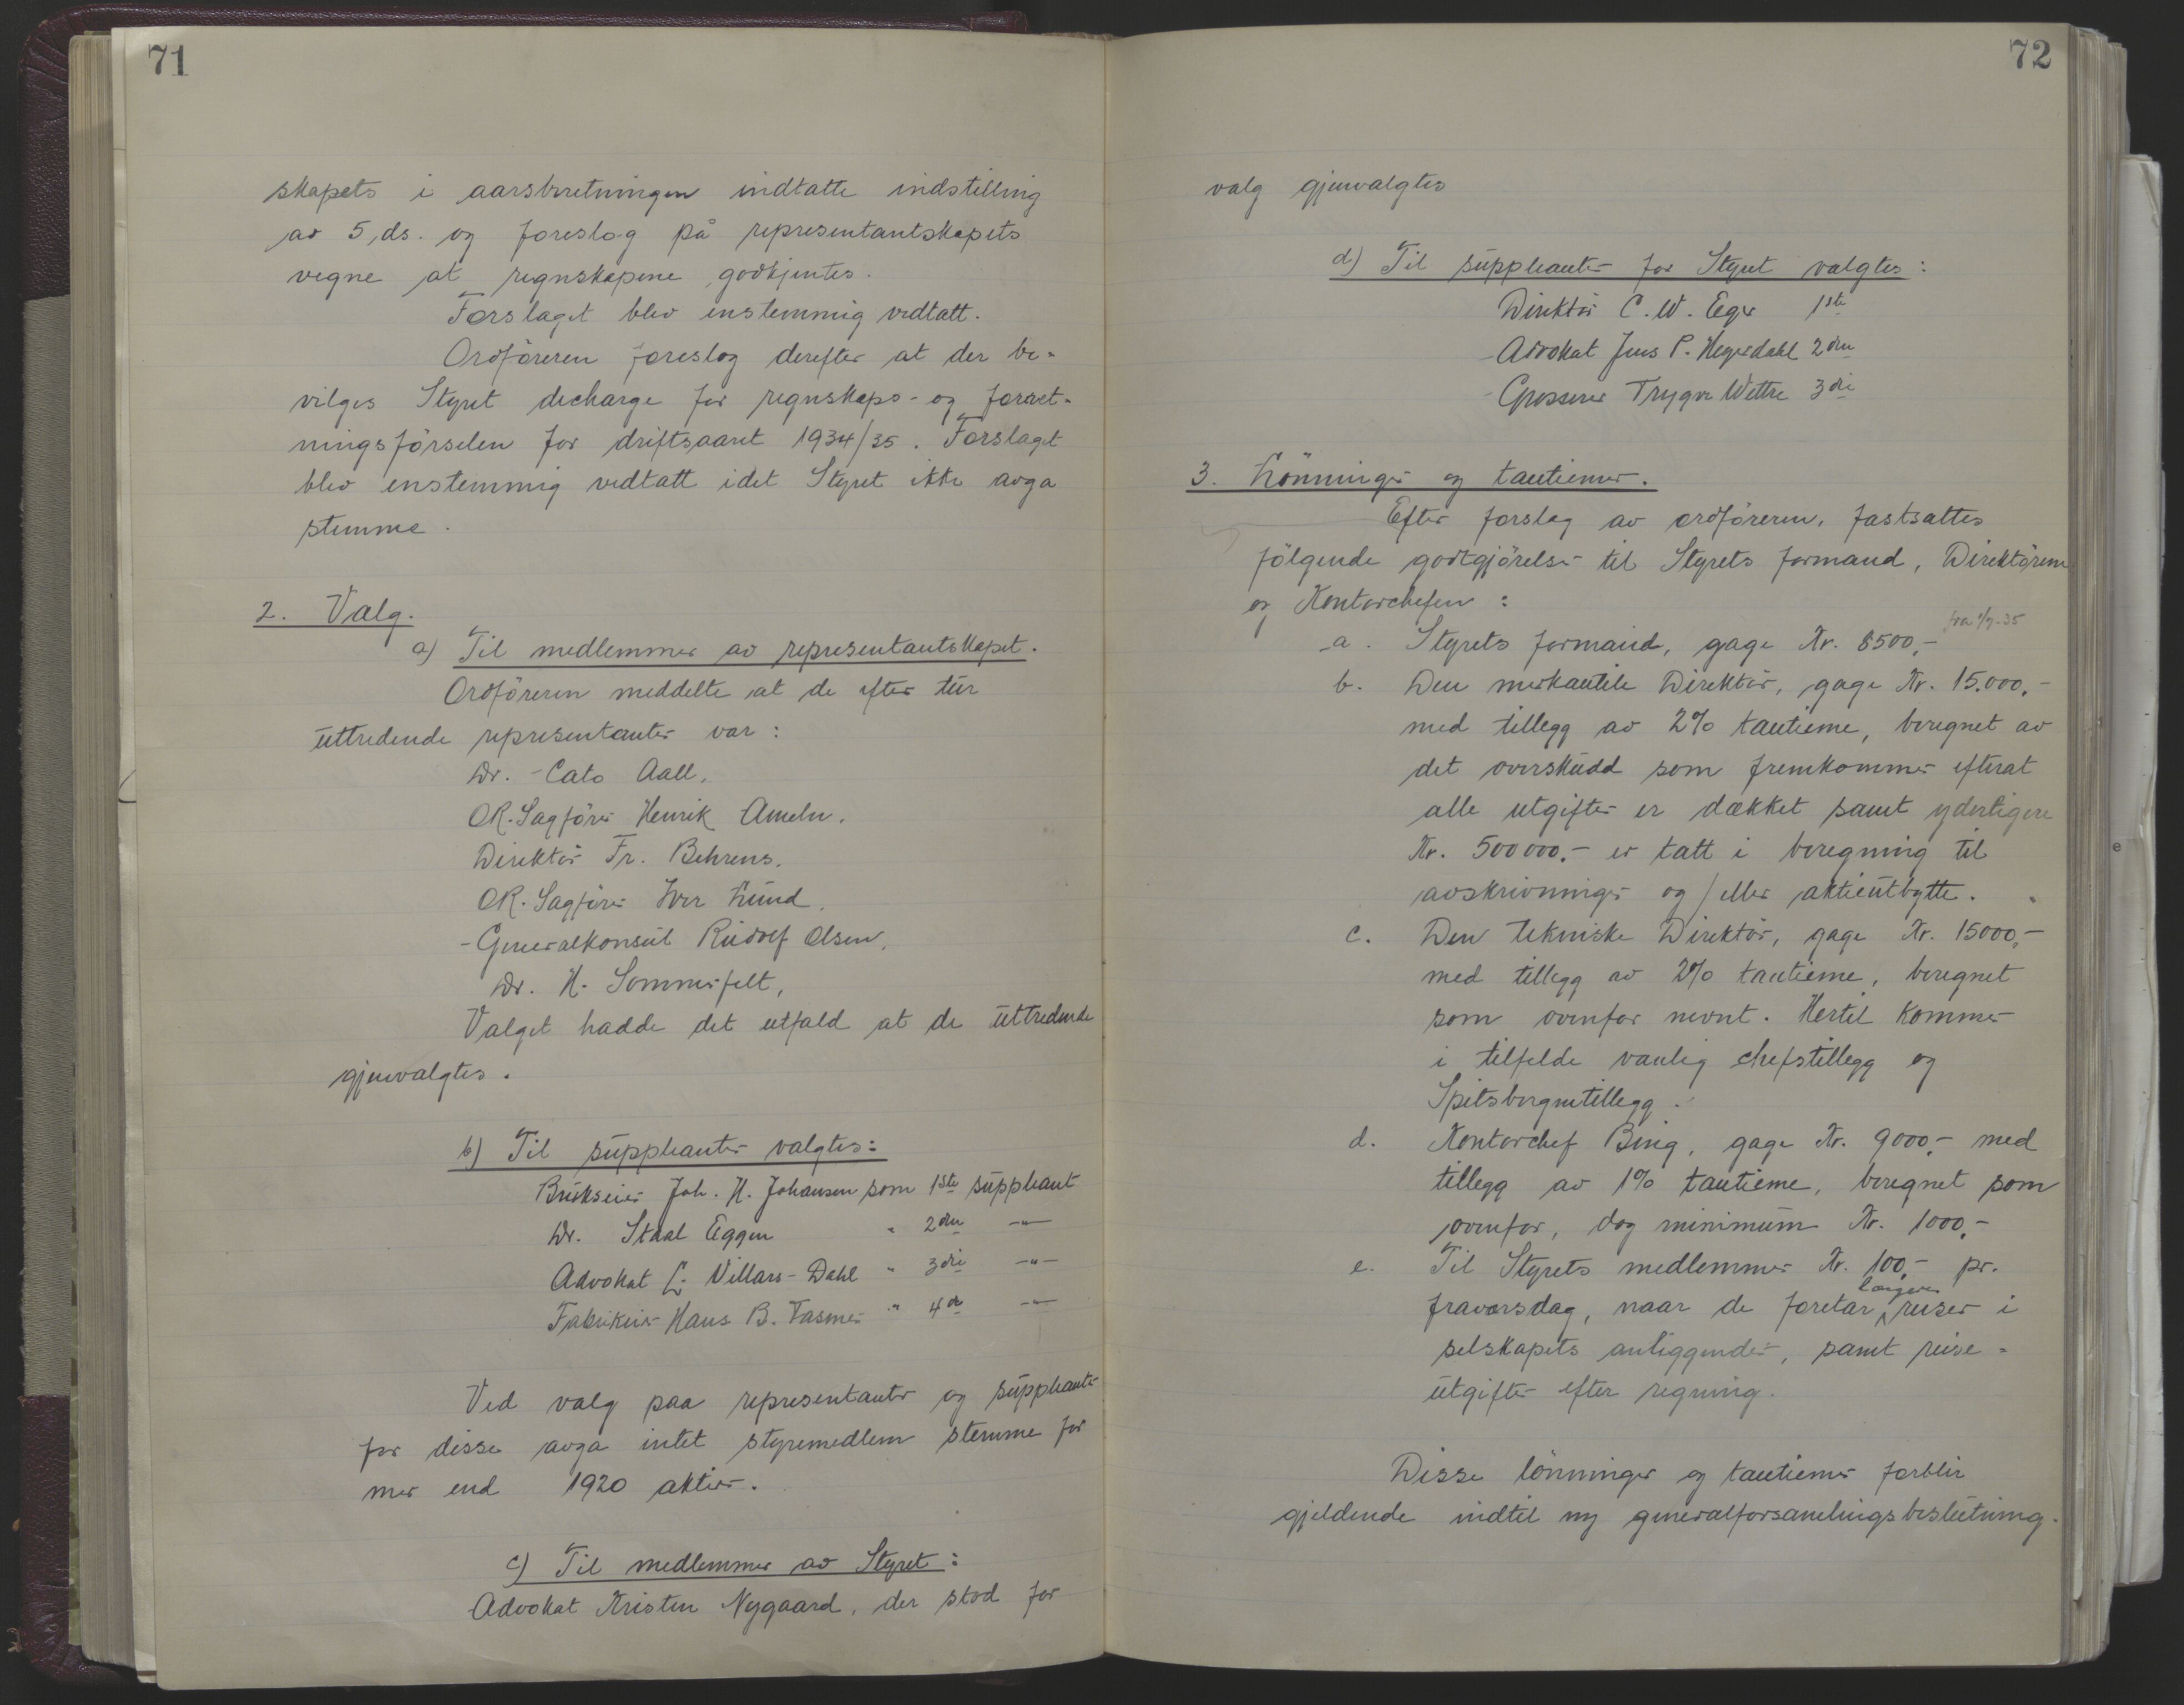 71
skapets i aarsberetningen indtatte indstilling
av 5. ds. og foreslog på representantskapets
vegne at regnskapene godkjentes.
Forslaget blev enstemmig vedtatt.
Ordföreren foreslog derefter at der be-
vilges Styret decharge for regnskaps- og forret-
ningsförselen for driftsaaret 1934/35. Forslaget
blev enstemmig vedtatt idet Styret ikke avga
stemme.
2. Valg.
a) Til medlemmer av representantskapet.
Ordföreren meddelte at de efter tur
uttredende representanter var:
Dr. Cato Aall,
OR. Sagförer Henrik Ameln,
Direktör Fr. Behrens,
OR. Sagförer Iver Lund,
Generalkonsul Rudolf Olsen,
Dr. H. Sommerfelt,
Valget hadde det utfald at de uttredende
gjenvalgtes.
b) Til suppleanter valgtes:
Brukseier Joh. H. Johansen som 1ste suppleant
Dr. Staal Eggen " 2den —"—
Advokat L. Villars-Dahl " 3die —"—
Fabrikeier Hans B. Fasmer " 4de —"—
Ved valg paa representanter og suppleanter
for disse avga intet styremedlem stemme for
mer end 1920 aktier.
c) Til medlemmer av Styret:
Advokat Kristen Nygaard, der stod for
72
valg gjenvalgtes
d) Til suppleanter for Styret valgtes:
Direktör C. W. Eger 1ste
Advokat Jens P. Heyerdahl 2den
Grosserer Trygve Wettre 3die
3. Lönninger og tantiemer.
Efter forslag av ordföreren, fastsattes
fölgende godtgjörelser til Styrets formand, Direktörene
og Kontorchefen:
fra 1/7-35
a. Styrets formand, gage Kr. 8500,-
b. Den merkantile Direktör, gage Kr. 15.000,-
med tillegg av 2% tantieme, beregnet av
det overskudd som fremkommer efterat
alle utgifter er dækket samt yderligere
Kr. 500000,- er tatt i beregning til
avskrivninger og/eller aktieutbytte.
c. Den tekniske Direktör, gage Kr. 15000,-
med tillegg av 2% tantieme, beregnet
som ovenfor nevnt. Hertil kommer
i tilfelde vanlig chefstillegg og
Spitsbergentillegg.
d. Kontorchef Bing, gage Kr. 9000,- med
tillegg av 1% tantieme, beregnet som
ovenfor, dog minimum Kr. 1000,-
e. Til Styrets medlemmer Kr. 100,- pr.
fraværsdag, naar de foretar længere reiser i
selskapets anliggender, samt reise-
utgifter efter regning.
Disse lönninger og tantiemer forblir
gjeldende indtil ny generalforsamlingsbeslutning.